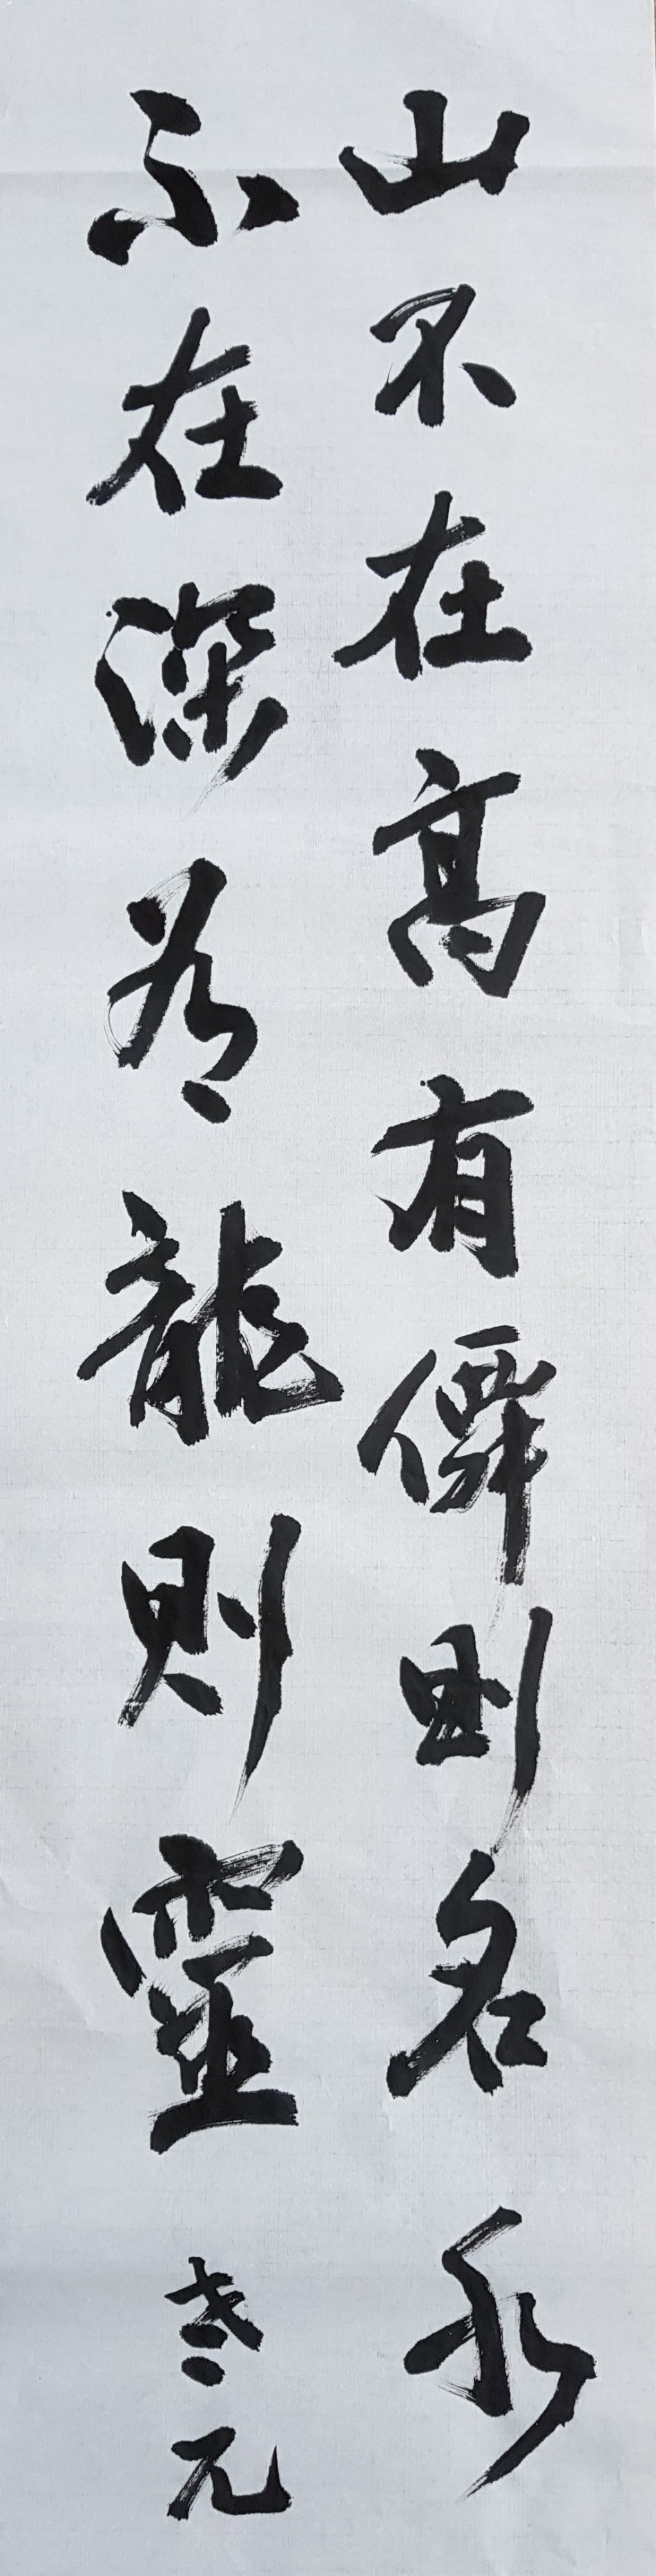 山不在高有僊則名水
不在深有龍則靈 元